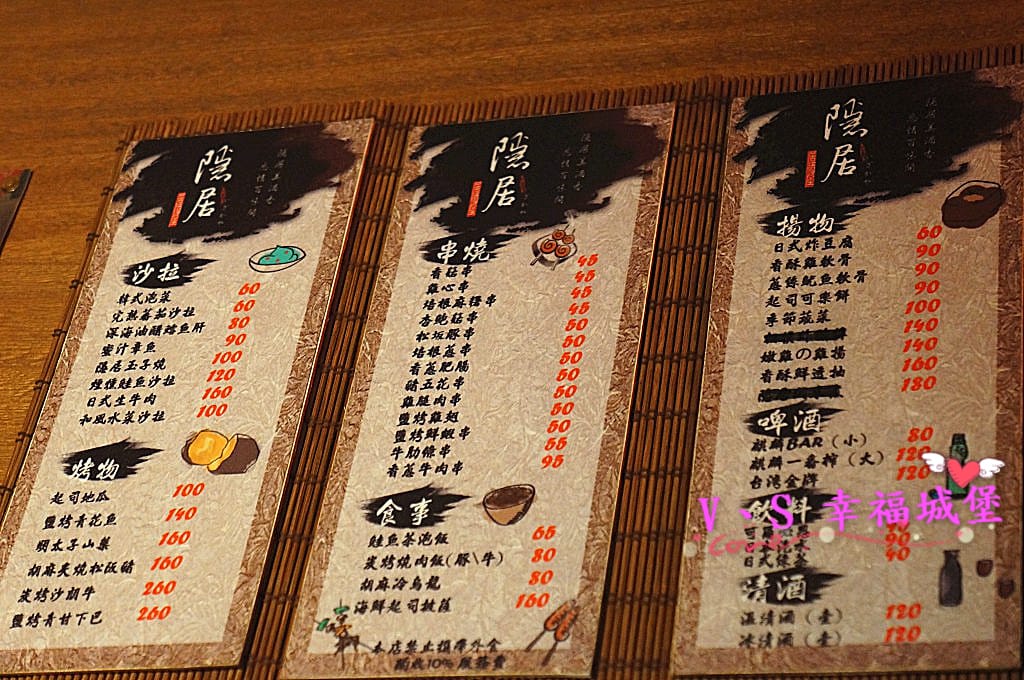 隱居
沙拉
韓式泡菜 60
完熟蕃茄沙拉 60
深海油醋鱈魚肝 80
蜜汁章魚 90
隱居玉子燒 100
煙燻鮭魚沙拉 120
日式生牛肉 160
和風水菜沙拉 100
烤物
起司地瓜 100
鹽烤青花魚 140
明太子山藥 160
胡麻炙燒松阪豬 160
炭烤沙朗牛 260
鹽烤青甘下巴 260
隱居
串燒
香菇串 45
雞心串 45
培根麻糬串 45
杏鮑菇串 45
松坂豚串 50
培根蔥串 50
香蔥肥腸 50
豬五花串 50
雞腿肉串 50
鹽烤雞翅 50
鹽烤鮮蝦串 50
牛肋條串 55
香蔥牛肉串 95
食事
鮭魚茶泡飯 65
炭烤燒肉飯(豚\牛) 80
胡麻冷烏龍 80
海鮮起司披薩 160
本店禁止攜帶外食
酌收10% 服務費
隱居
揚物
日式炸豆腐 60
香酥雞軟骨 90
蔥絲魷魚軟骨 90
起司可樂餅 90
季節蔬菜 100
140
嫩雞の雞揚 140
香酥鮮透抽 160
180
啤酒
麒麟BAR（小） 80
麒麟一番搾（大） 120
台灣金牌 120
飲料
90
日式綠茶 40
清酒
溫清酒（壺） 120
冰清酒（壺） 120
V、S 幸福城堡